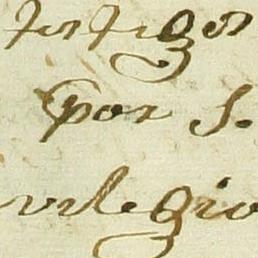 testigos
por S.
vilegio